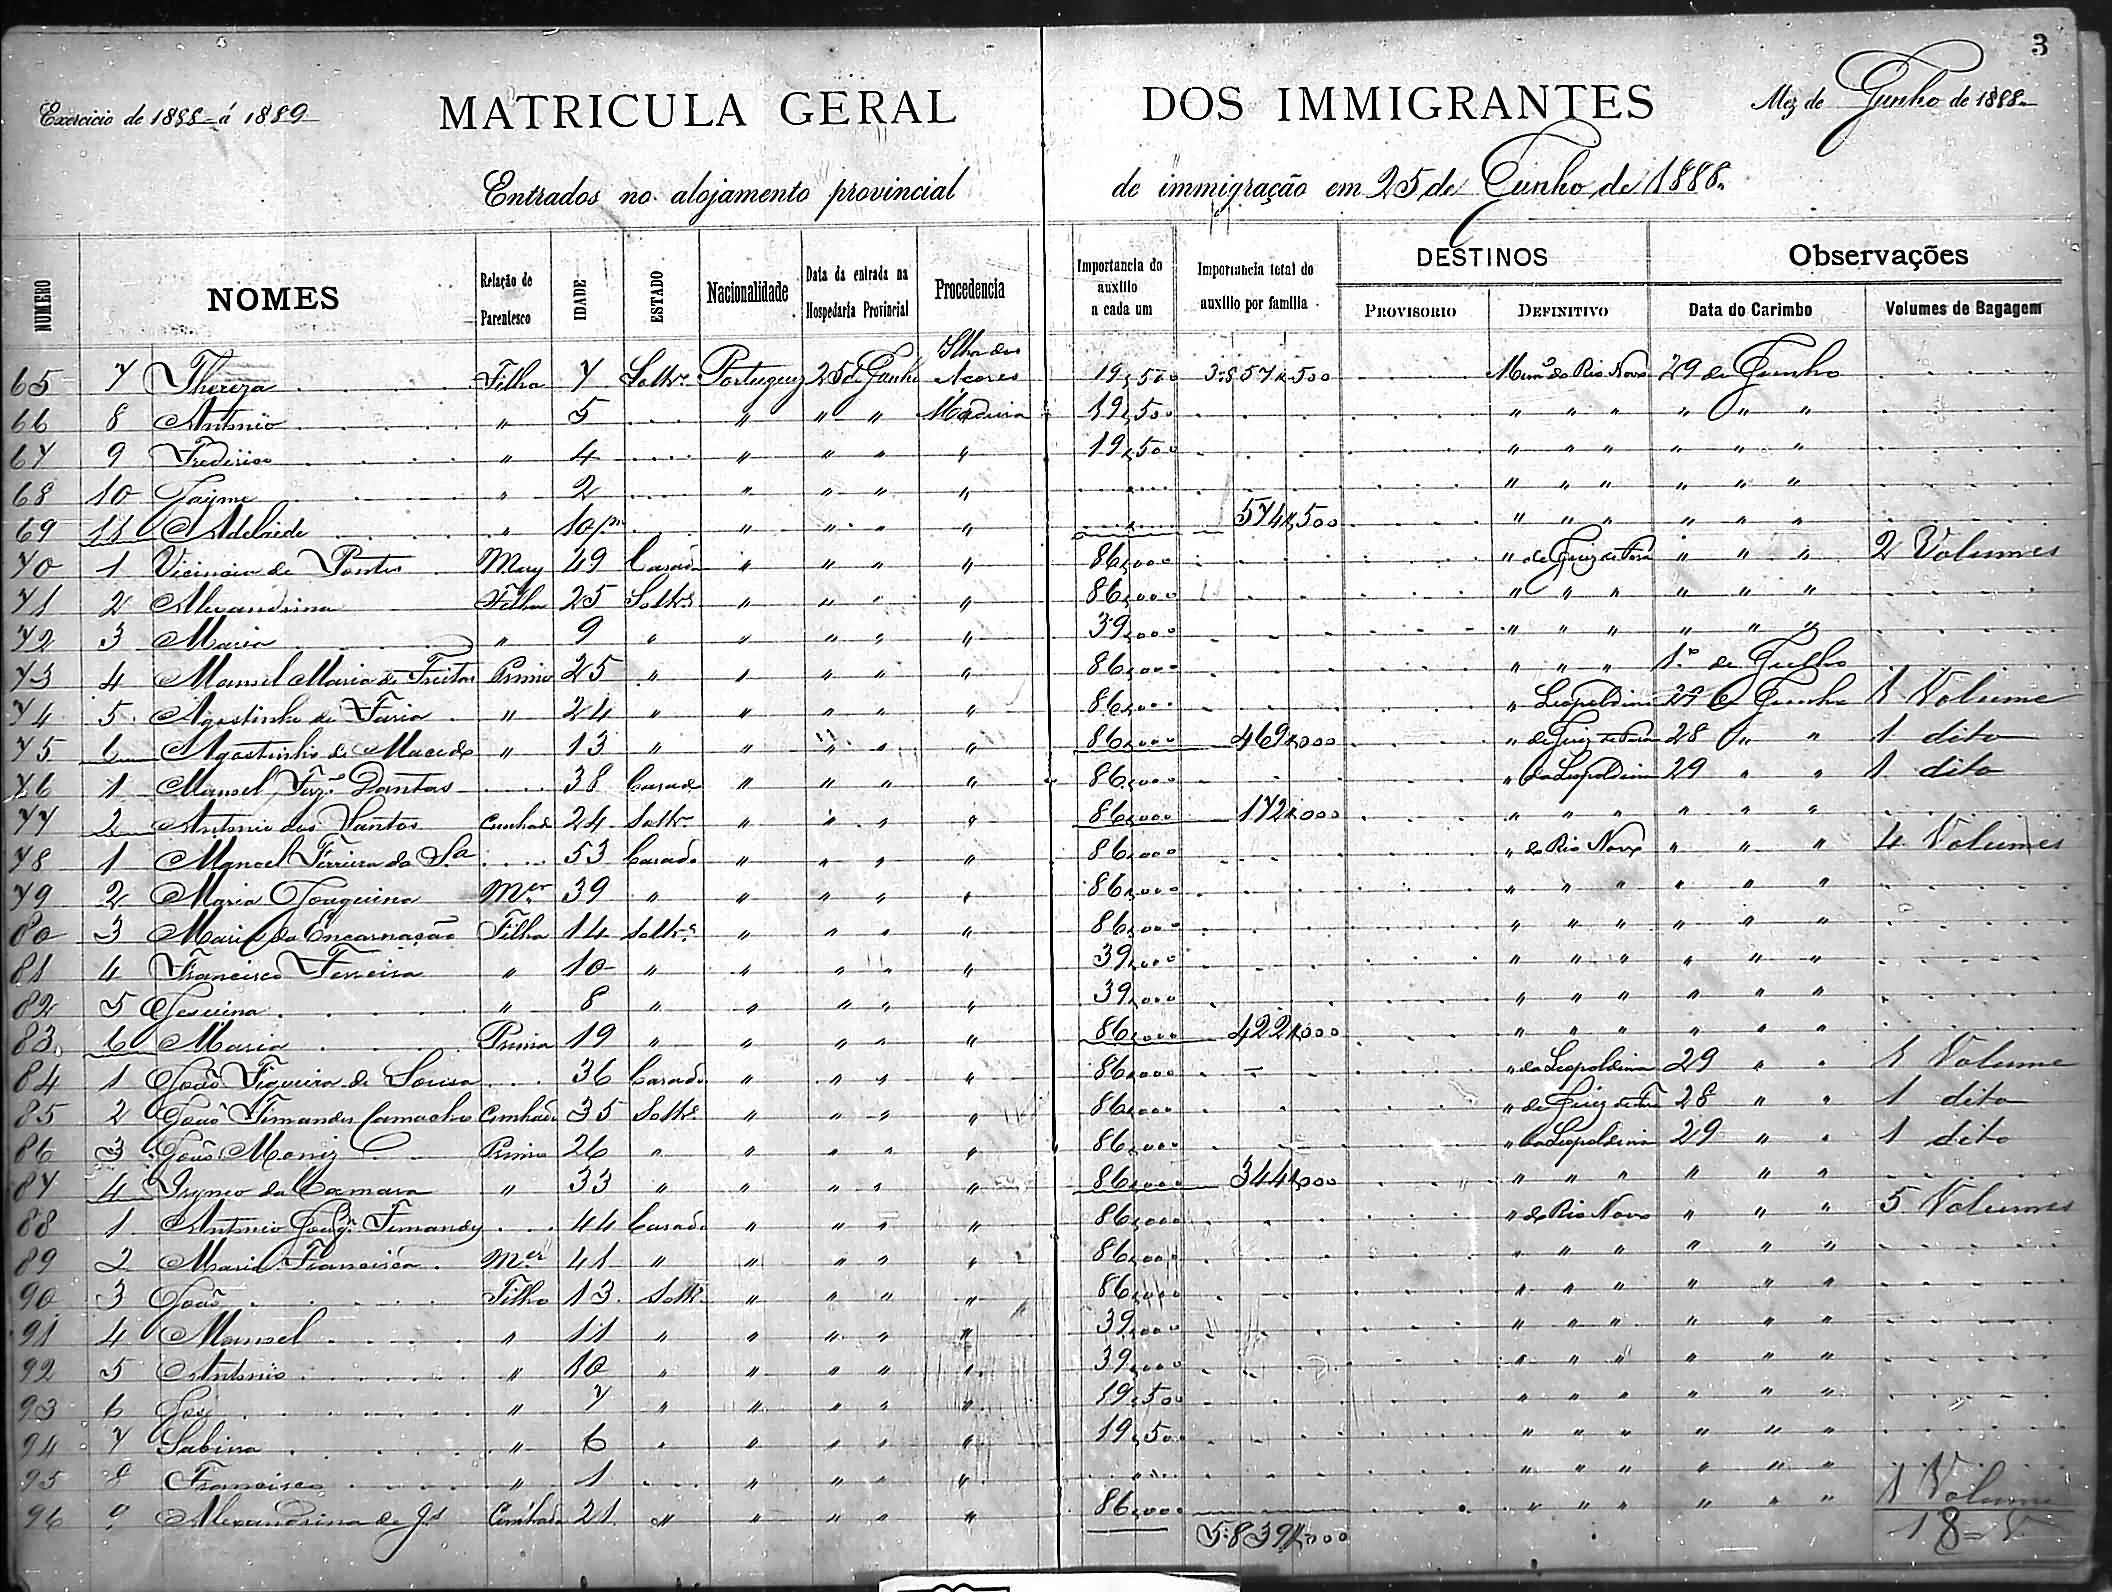 3
Exercicio de 1888 á 1889 MATRICULA GERAL DOS IMMIGRANTES Mez de Junho de 1888
Entrados no alojamento provincial de immigração em 25 de Junho de 1888
NUMERO NOMES Relação de Parentesco IDADE ESTADO Nacionalidade Data da entrada na Hospedaria Provincial Procedencia Importancia do auxilio a cada um Importancia total do auxilio por familia DESTINOS PROVISORIO DEFINITIVO Observações Data do Carimbo Volumes de Bagagem
65 7 Thereza Filha 7 Solt.ª Portuguez 25 de Junho Ilha dos Açores 19,500 3:857$500 Mun.º do Rio Novo 29 de Junho
66 8 Antonio " 5 " " " Madeira 19,500 " " " " " "
67 9 Frederico " 4 " " " " 19,500 " " " " " "
68 10 Jayme " 2 " " " " " " " " " "
69 11 Adelaide " 10/m " " " " 574$500 " " " " " "
70 1 de Pontes May 49 Casada " " " " 86,000 " de Juiz de Fora " " " 2 Volumes
71 2 Alexandrina Filha 25 Solt.ª " " " " 86,000 " " " " " "
72 3 Maria " 9 " " " " " 39,000 " " " " " "
73 4 Manoel Maria de Freitas Primo 25 " " " " " 86,000 " " " 1.º de Julho
74 5 Agostinho de Faria " 24 " " " " " 86,000 " Leopoldina 29 de Junho 1 Volume
75 6 Agostinho de Macedo " 13 " " " " " 86,000 469$000 " de Juiz de Fora 28 " " 1 dito
76 1 Manoel Faz.º Dantas 38 Casado " " " " 86,000 " da Leopoldina 29 " " 1 dito
77 2 Antonio dos Santos Cunhado 24 Solt.º " " " " 86,000 172$000 " " " " " "
78 1 Manoel Ferreira da S.ª 53 Casado " " " " 86,000 " do Rio Novo " " " 4 Volumes
79 2 Maria Joaquina M.er 39 " " " " " 86,000 " " " " " "
80 3 Maria da Encarnação Filha 14 Solt.ª " " " " 86,000 " " " " " "
81 4 Francisco Ferreira " 10 " " " " " 39,000 " " " " " "
82 5 Jesuina " 8 " " " " " 39,000 " " " " " "
83 6 Maria Prima 19 " " " " " 86,000 422$000 " " " " " "
84 1 João Figueira de Sousa 36 Casado " " " " 86,000 " da Leopoldina 29 " " 1 Volume
85 2 João Fernandes Camacho Cunhado 35 Solt.º " " " " 86,000 " de Juiz de Fora 28 " " 1 dito
86 3 João Moniz Primo 26 " " " " " 86,000 " da Leopoldina 29 " " 1 dito
87 4 da Camara " 33 " " " " " 86,000 344$000 " " " " " "
88 1 Antonio Joaq.m Fernandes 44 Casado " " " " 86,000 " do Rio Novo " " " 5 Volumes
89 2 Maria Francisca M.er 41 " " " " " 86,000 " " " " " "
90 3 João Filho 13 Solt.º " " " " 86,000 " " " " " "
91 4 Manoel " 11 " " " " " 39,000 " " " " " "
92 5 Antonio " 10 " " " " " 39,000 " " " " " "
93 6 José " 7 " " " " " 19,500 " " " " " "
94 7 Sabina " 6 " " " " " 19,500 " " " " " "
95 8 Francisco " 1 " " " " " " " " " "
96 9 Alexandrina de J.s Cunhada 21 " " " " " 86,000 " " " " " " 1 Volume
5:839$000 18 V.